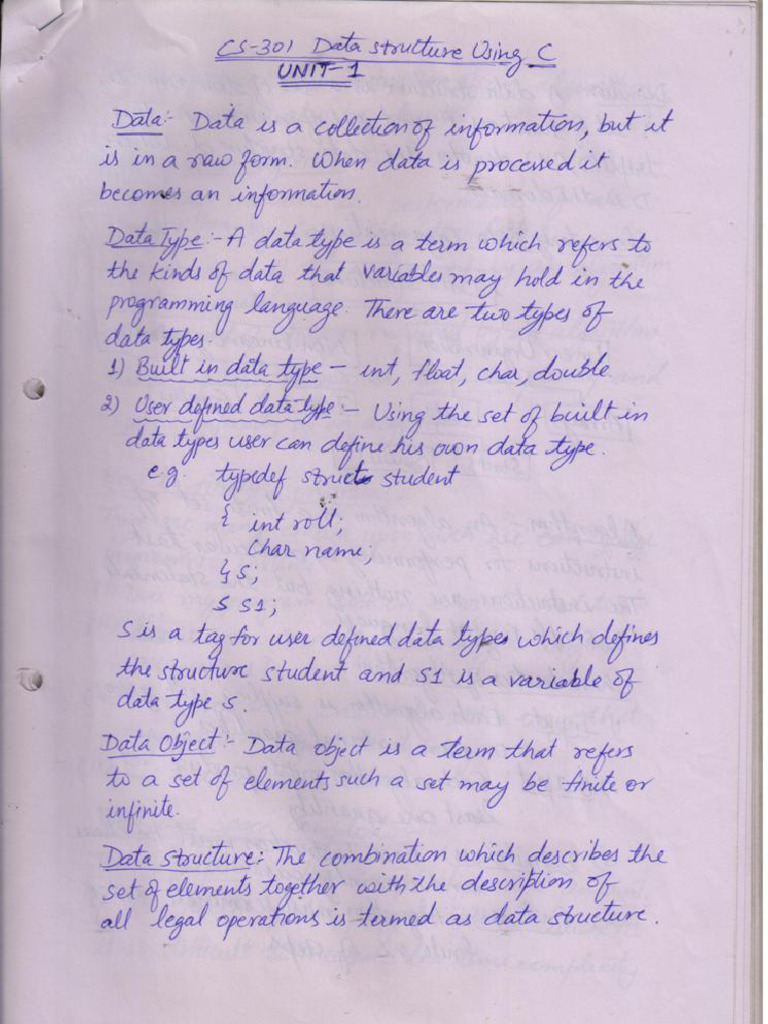 CS-301 Data structure Using C
UNIT-1
Data:- Data is a collection of information, but it
is in a raw form. When data is processed it
becomes an information.
Data Type:- A data type is a term which refers to
the kinds of data that variables may hold in the
programming language. There are two types of
data types-
1) Built in data type - int, float, char, double
2) User defined data type:- Using the set of built in
data types user can define his own data type.
e.g. typedef struct student
{ int roll;
Char name;
} S;
S S1;
S is a tag for user defined data types which defines
the structure student and S1 is a variable of
data type S.
Data Object:- Data object is a term that refers
to a set of elements such a set may be finite or
infinite.
Data Structure: The combination which describes the
set of elements together with the description of
all legal operations is termed as data structure.